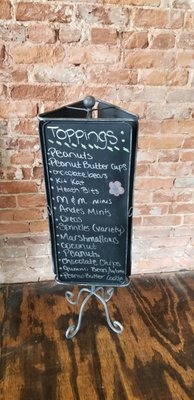 Toppings:
Peanuts
Peanut Butter Cups
chocolate bears
Kit Kat
Heath Bits
M & M minis
Andes Mints
Oreos
Sprinkle (Variety)
Marshmallows
Coconut
Peanuts
Chocolate Chips
Gummi Bears/
Peanut Butter